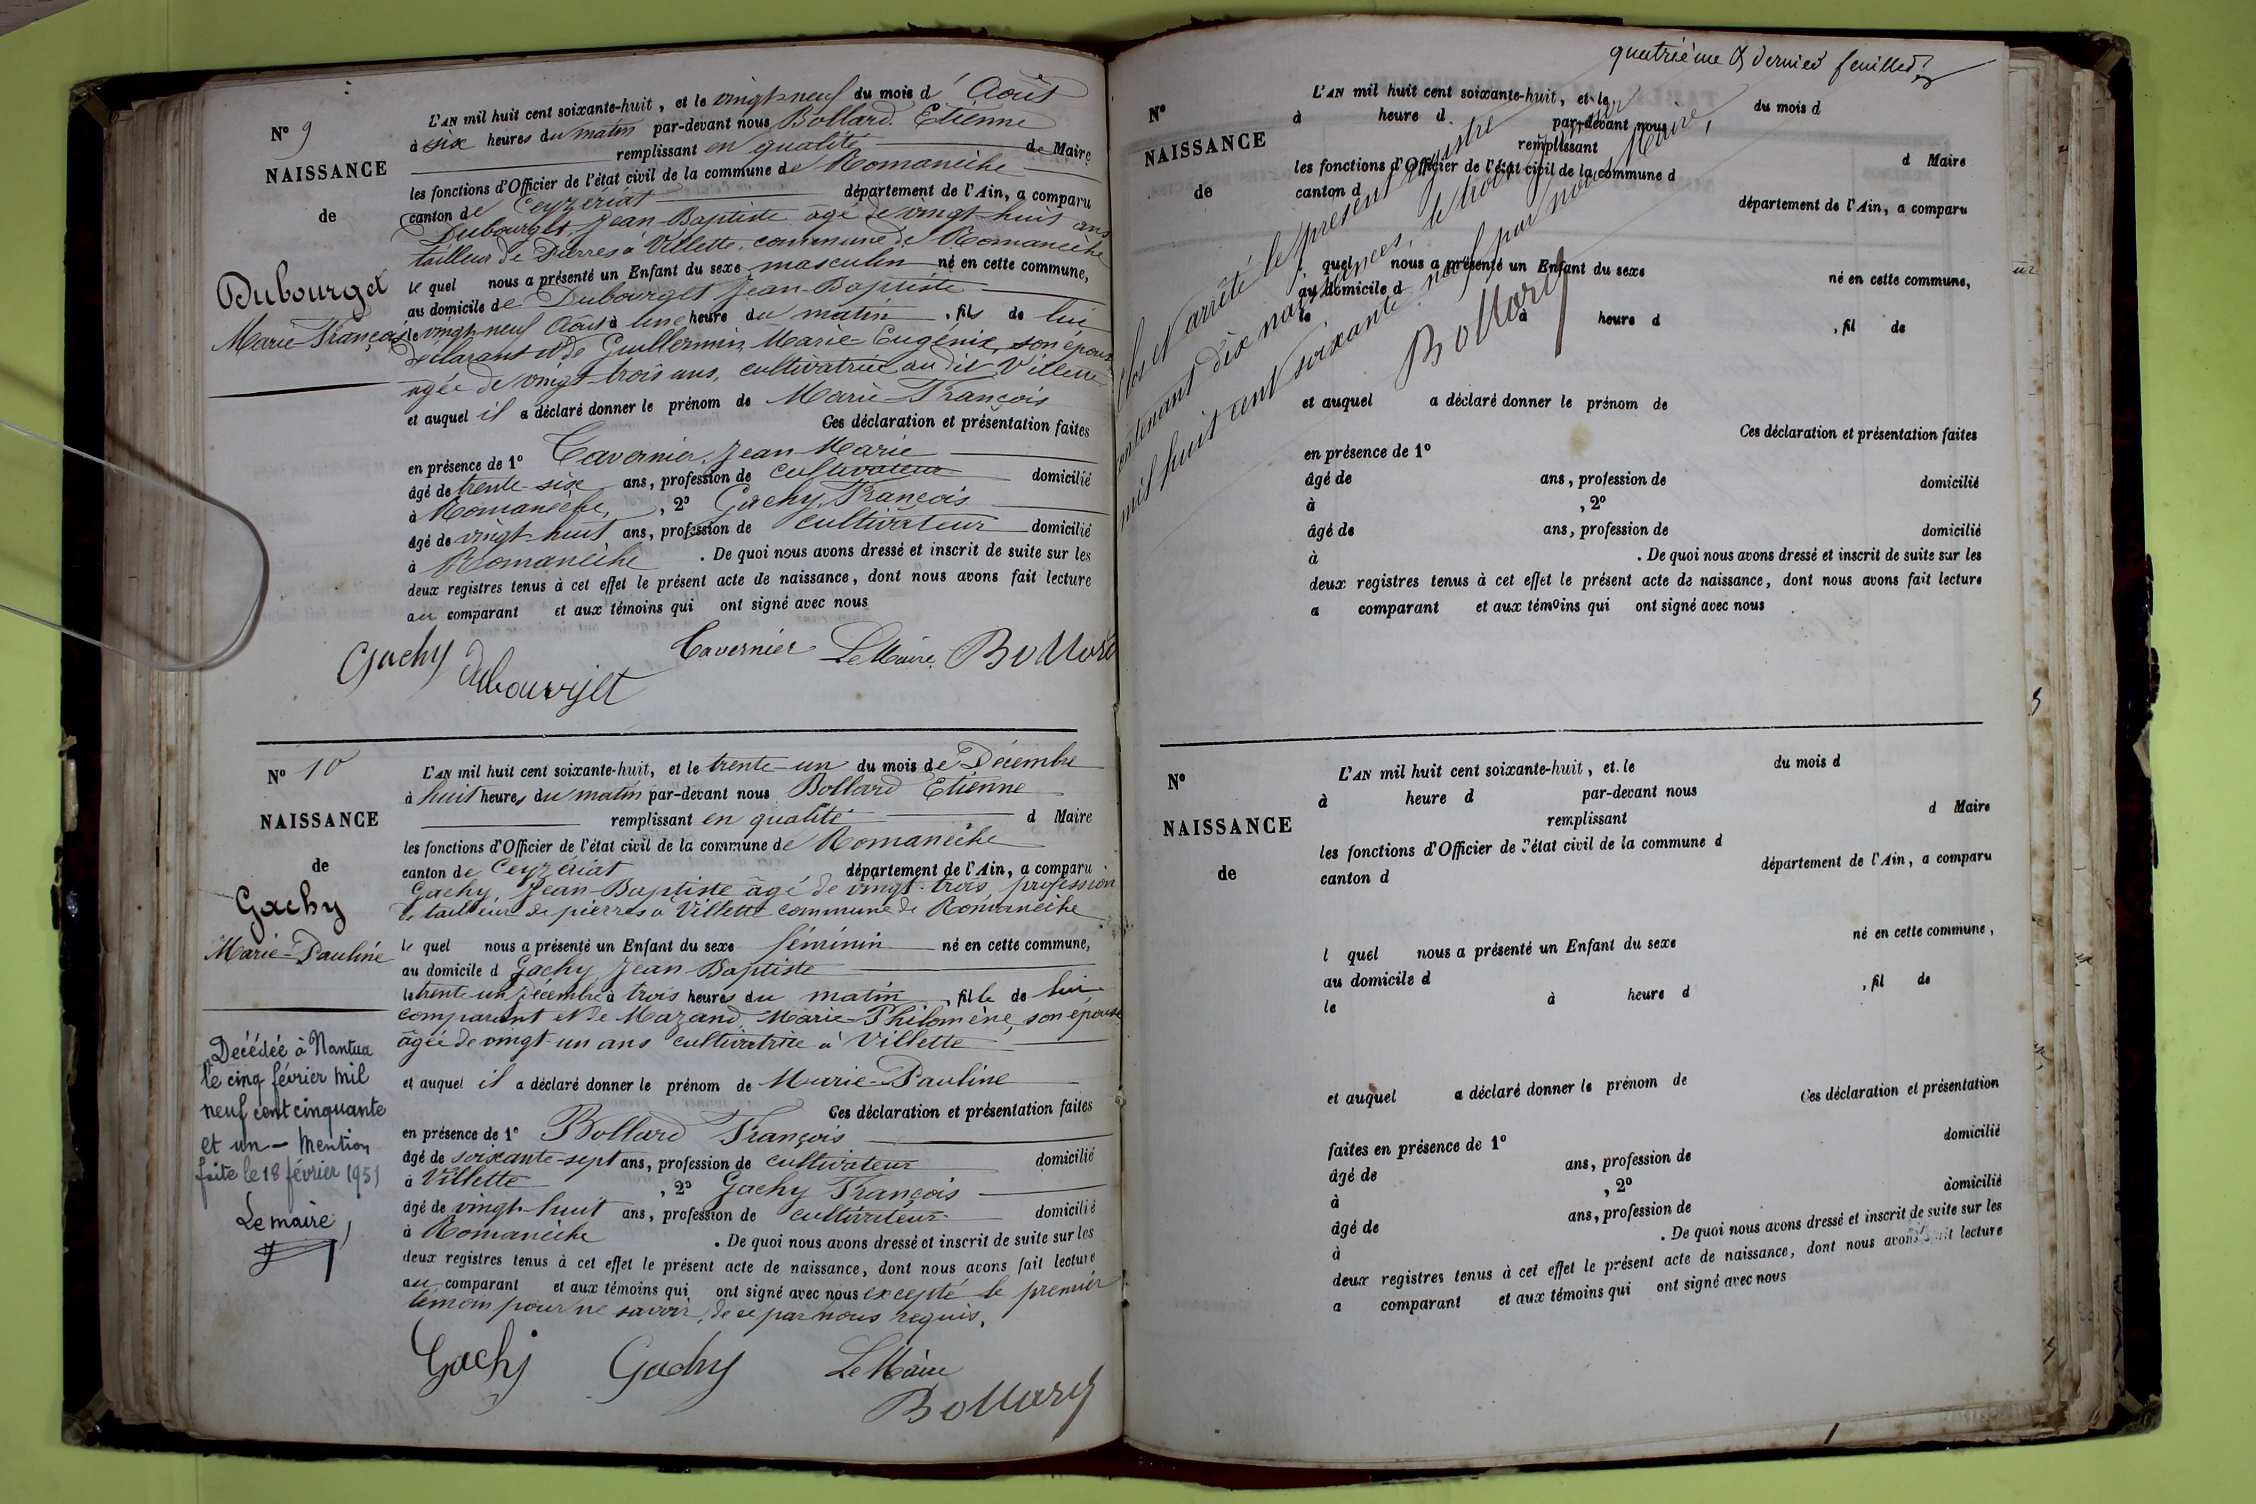 N° 9
NAISSANCE
de
Dubourget
Marie-François
L'AN mil huit cent soixante-huit, et le vingt-neuf du mois d'Août
à six heures du matin par-devant nous Bollard Etienne
remplissant en qualité de Maire
les fonctions d'Officier de l'état civil de la commune de Romanèche
canton de Ceyzériat département de l'Ain, a comparu
Dubourget, Jean-Baptiste âgé de vingt-huit ans
tailleur de Pierres à Villette, commune de Romanèche
le quel nous a présenté un Enfant du sexe masculin né en cette commune,
au domicile de Dubourget Jean-Baptiste
le vingt-neuf Août à une heure du matin, fils de lui
déclarant et de Guillermin, Marie-Eugénie, son épouse
âgée de vingt-trois ans, cultivatrice au dit Villette
et auquel il a déclaré donner le prénom de Marie-François
Ces déclaration et présentation faites
en présence de 1° Tavernier, Jean-Marie
âgé de trente-six ans, profession de cultivateur domicilié
à Romanèche, 2° Gachy, François
âgé de vingt-huit ans, profession de cultivateur domicilié
à Romanèche. De quoi nous avons dressé et inscrit de suite sur les
deux registres tenus à cet effet le présent acte de naissance, dont nous avons fait lecture
au comparant et aux témoins qui ont signé avec nous
Gachy Dubourget Tavernier Le Maire, Bollard
N° 10
NAISSANCE
de
Gachy
Marie-Pauline
L'AN mil huit cent soixante-huit, et le trente-un du mois de Décembre
à huit heures du matin par-devant nous Bollard Etienne
remplissant en qualité d Maire
les fonctions d'Officier de l'état civil de la commune de Romanèche
canton de Ceyzériat département de l'Ain, a comparu
Gachy, Jean-Baptiste âgé de vingt-trois, profession
de tailleur de pierres à Villette commune de Romanèche
le quel nous a présenté un Enfant du sexe féminin né en cette commune,
au domicile d Gachy Jean-Baptiste
le trente-un Décembre à trois heures du matin, fille de lui
comparant et de Mazand, Marie-Philomène, son épouse
âgée de vingt-un ans cultivatrice à Villette
et auquel il a déclaré donner le prénom de Marie-Pauline
Ces déclaration et présentation faites
en présence de 1° Bollard François
âgé de soixante-sept ans, profession de cultivateur domicilié
à Villette, 2° Gachy François
âgé de vingt-huit ans, profession de cultivateur domicilié
à Romanèche. De quoi nous avons dressé et inscrit de suite sur les
deux registres tenus à cet effet le présent acte de naissance, dont nous avons fait lecture
au comparant et aux témoins qui ont signé avec nous excepté le premier
témoin pour ne savoir, de ce par nous requis.
Gachy Gachy Le Maire
Bollard
Décédée à Nantua
le cinq février mil
neuf cent cinquante
et un - Mention
faite le 18 février 1951
Le maire,
quatrième & dernier feuillet
N°
NAISSANCE
de
L'AN mil huit cent soixante-huit, et le du mois d
à heure d par-devant nous
remplissant d Maire
les fonctions d'Officier de l'état civil de la commune d
canton d département de l'Ain, a comparu
l quel nous a présenté un Enfant du sexe né en cette commune,
au domicile d
le à heure d , fil de
et auquel a déclaré donner le prénom de
Ces déclaration et présentation faites
en présence de 1°
âgé de ans, profession de domicilié
à , 2°
âgé de ans, profession de domicilié
à . De quoi nous avons dressé et inscrit de suite sur les
deux registres tenus à cet effet le présent acte de naissance, dont nous avons fait lecture
a comparant et aux témoins qui ont signé avec nous
Clos et arrêté le présent registre
contenant dix naissances, le trois
mil huit cent soixante neuf par nous Maire,
Bollard
N°
NAISSANCE
de
L'AN mil huit cent soixante-huit, et le du mois d
à heure d par-devant nous
remplissant d Maire
les fonctions d'Officier de l'état civil de la commune d
canton d département de l'Ain, a comparu
l quel nous a présenté un Enfant du sexe né en cette commune,
au domicile d
le à heure d , fil de
et auquel a déclaré donner le prénom de
Ces déclaration et présentation
faites en présence de 1° domicilié
âgé de ans, profession de
à , 2° domicilié
âgé de ans, profession de
à . De quoi nous avons dressé et inscrit de suite sur les
deux registres tenus à cet effet le présent acte de naissance, dont nous avons fait lecture
a comparant et aux témoins qui ont signé avec nous